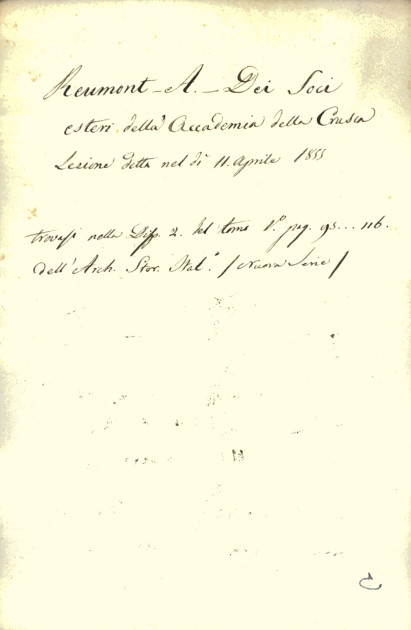 Reumont - A. - Dei Soci
esteri della Accademia della Crusca
Lezione detta nel dì 11. aprile 1855
trovasi nella Disp. 2. del tomo 1.º pag. 95... 116.
dell'Arch. Stor. Ital.º / Nuova Serie /